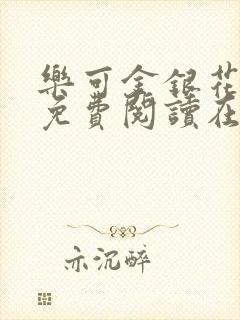 樂可金銀花
免費閱讀在
亦沉醉